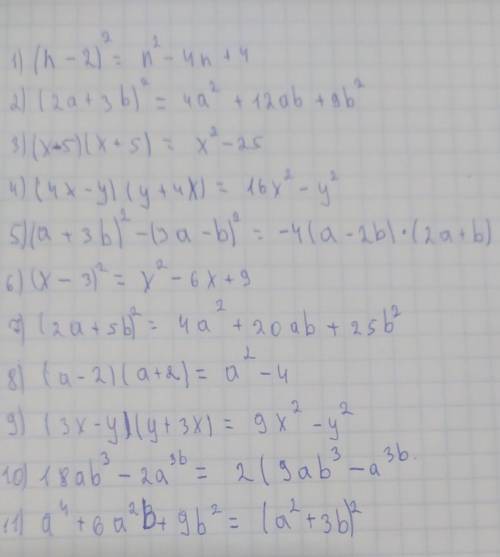 1) (n - 2)² = n² - 4n + 4
2) (2a + 3b)² = 4a² + 12ab + 9b²
3) (x-5)(x + 5) = x² - 25
4) (4x - y)(y + 4x) = 16x² - y²
5) (a + 3b)² - (3a - b)² = -4(a - 2b)·(2a + b)
6) (x - 3)² = x² - 6x + 9
7) (2a + 5b)² = 4a² + 20ab + 25b²
8) (a - 2)(a + 2) = a² - 4
9) (3x - y)(y + 3x) = 9x² - y²
10) 18ab³ - 2a³ᵇ = 2(9ab³ - a³ᵇ
11) a⁴ + 6a²b + 9b² = (a² + 3b)²